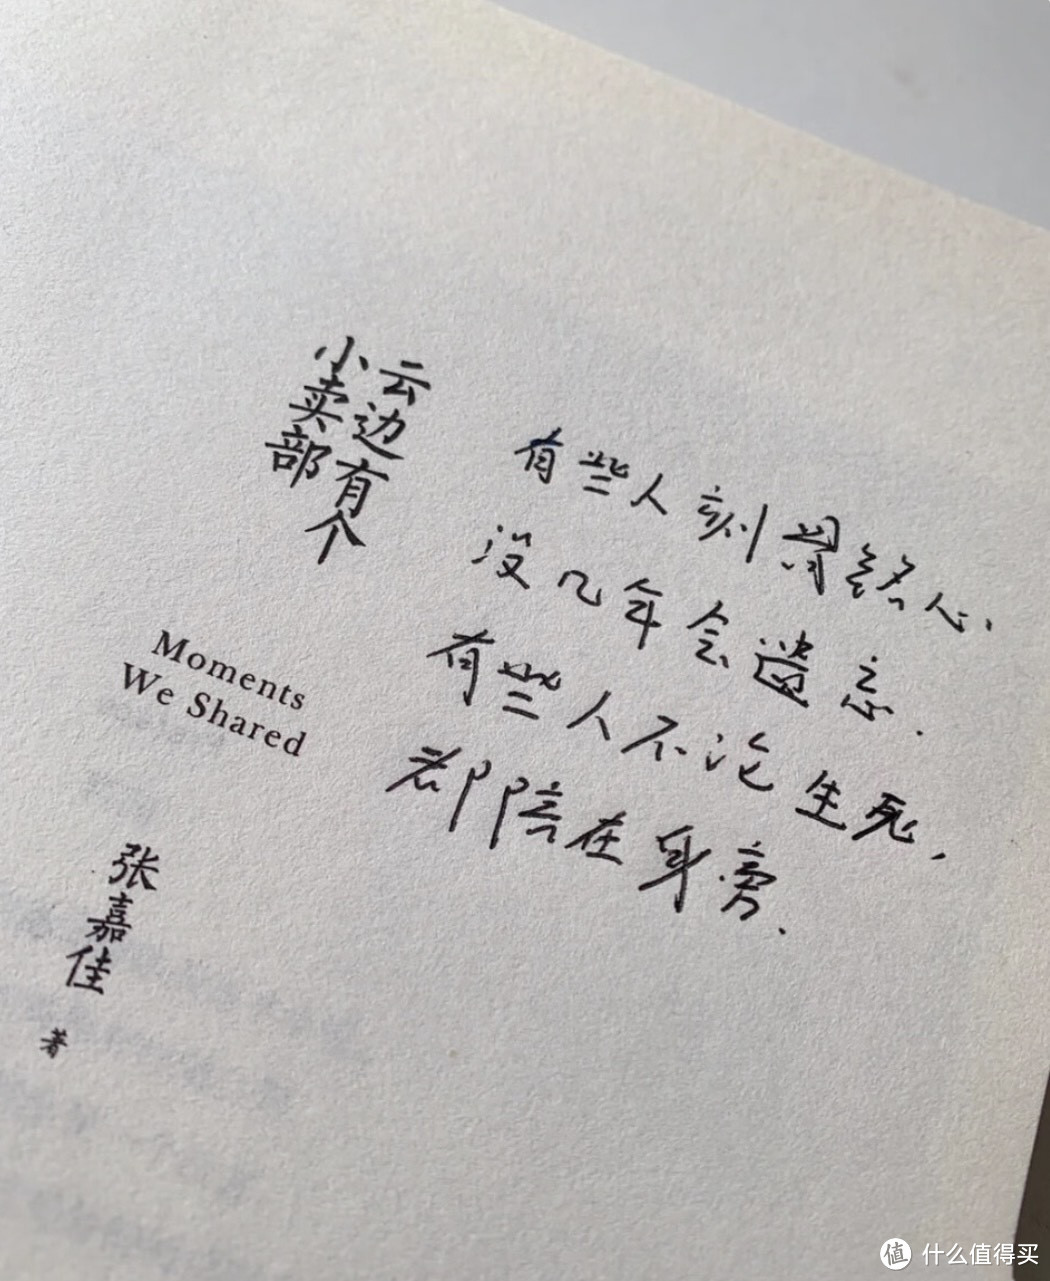 云边有个
小卖部
Moments
We Shared
张嘉佳
著
有些人刻骨铭心.
没几年会遗忘.
有些人不论生死,
都陪在身旁.
值 什么值得买